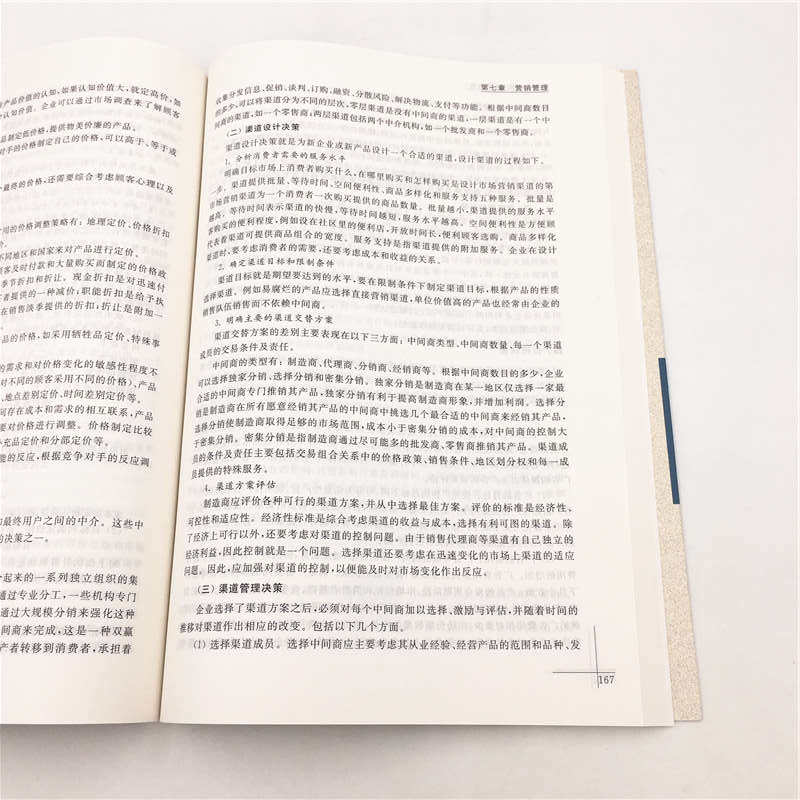 产品价值的认知、如果认知价值大，就定高价，如
认知价值。企业可以通过市场调查来了解顾客
品制定低价格，提供物美价廉的产品。
对手的价格制定自己的价格，可以高于、等于或
最终的价格，还需要综合考虑顾客心理以及
用的价格调整策略有：地理定价、价格折扣
价。
不同地区和国家来对产品进行定价。
顾客及时付款和大量购买而制定的价格政
季节折扣和折让。现金折扣是对迅速付
者提供的一种减价；职能折扣是给予执
在销售淡季提供的折扣；折让是附加一
产品的价格，如采用牺牲品定价、特殊事
的需求和对价格变化的敏感性程度不
对不同的顾客采用不同的价格）、产品
、地点差别定价、时间差别定价等。
间存在成本和需求的相互联系，产品
要对价格进行调整。价格制定比较
补充品定价和分部定价等。
能的反应，根据竞争对手的反应调
和最终用户之间的中介。这些中
的决策之一。
合起来的一系列独立组织的集
通过专业分工，一些机构专门
通过大规模分销来强化这种
间商来完成，这是一种双赢
产者转移到消费者，承担着
第七章 营销管理
收集分发信息、促销、谈判、订购、融资、分散风险、解决物流、支付等功能。根据中间商数目
的多少，可以将渠道分为不同的层次，零层渠道是没有中间商的渠道，一层渠道是有一个中
间商的渠道，如一个零售商；两层渠道包括两个中介机构，如一个批发商和一个零售商。
（二）渠道设计决策
渠道设计决策就是为新企业或新产品设计一个合适的渠道，设计渠道的过程如下。
1. 分析消费者需要的服务水平
明确目标市场上消费者购买什么，在哪里购买和怎样购买是设计市场营销渠道的第
一步。渠道提供批量、等待时间、空间便利性、商品多样化和服务支持五种服务。批量是
市场营销渠道为一个消费者一次购买提供的商品数量。批量越小，渠道提供的服务水平
越高。等待时间表示渠道的快慢，等待时间越短，服务水平越高。空间便利性是方便顾
客购买的便利程度，例如设在社区里的便利店，开放时间长，便利顾客选购。商品多样化
代表着渠道可提供商品组合的宽度。服务支持是指渠道提供的附加服务。企业在设计
渠道时，要考虑消费者的需要，还要考虑成本和收益的关系。
2. 确定渠道目标和限制条件
渠道目标就是期望要达到的水平，要在限制条件下制定渠道目标，根据产品的性质
选择渠道。例如易腐烂的产品应选择直接营销渠道，单位价值高的产品也经常由企业的
销售队伍销售而不依赖中间商。
3. 明确主要的渠道交替方案
渠道交替方案的差别主要表现在以下三方面：中间商类型、中间商数量、每一个渠道
成员的交易条件及责任。
中间商的类型有：制造商、代理商、分销商、经销商等。根据中间商数目的多少，企业
可以选择独家分销、选择分销和密集分销。独家分销是制造商在某一地区仅选择一家最
合适的中间商专门推销其产品，独家分销有利于提高制造商形象，并增加利润。选择分
销是制造商在所有愿意经销其产品的中间商中挑选几个最合适的中间商来经销其产品，
选择分销使制造商取得足够的市场范围，成本小于密集分销的成本，对中间商的控制大
于密集分销。密集分销是指制造商通过尽可能多的批发商、零售商推销其产品。渠道成
员的条件及责任主要包括交易组合关系中的价格政策、销售条件、地区划分权和每一成
员提供的特殊服务。
4. 渠道方案评估
制造商应评价各种可行的渠道方案，并从中选择最佳方案。评价的标准是经济性、
可控性和适应性。经济性标准是综合考虑渠道的收益与成本，选择有利可图的渠道。除
了经济上可行以外，还要考虑对渠道的控制问题。由于销售代理商等渠道有自己独立的
经济利益，因此控制就是一个问题。选择渠道还要考虑在迅速变化的市场上渠道的适应
问题。因此，应加强对渠道的控制，以便能及时对市场变化作出反应。
（三）渠道管理决策
企业选择了渠道方案之后，必须对每个中间商加以选择、激励与评估，并随着时间的
推移对渠道作出相应的改变。包括以下几个方面。
（1）选择渠道成员。选择中间商应主要考虑其从业经验、经营产品的范围和品种、发
167